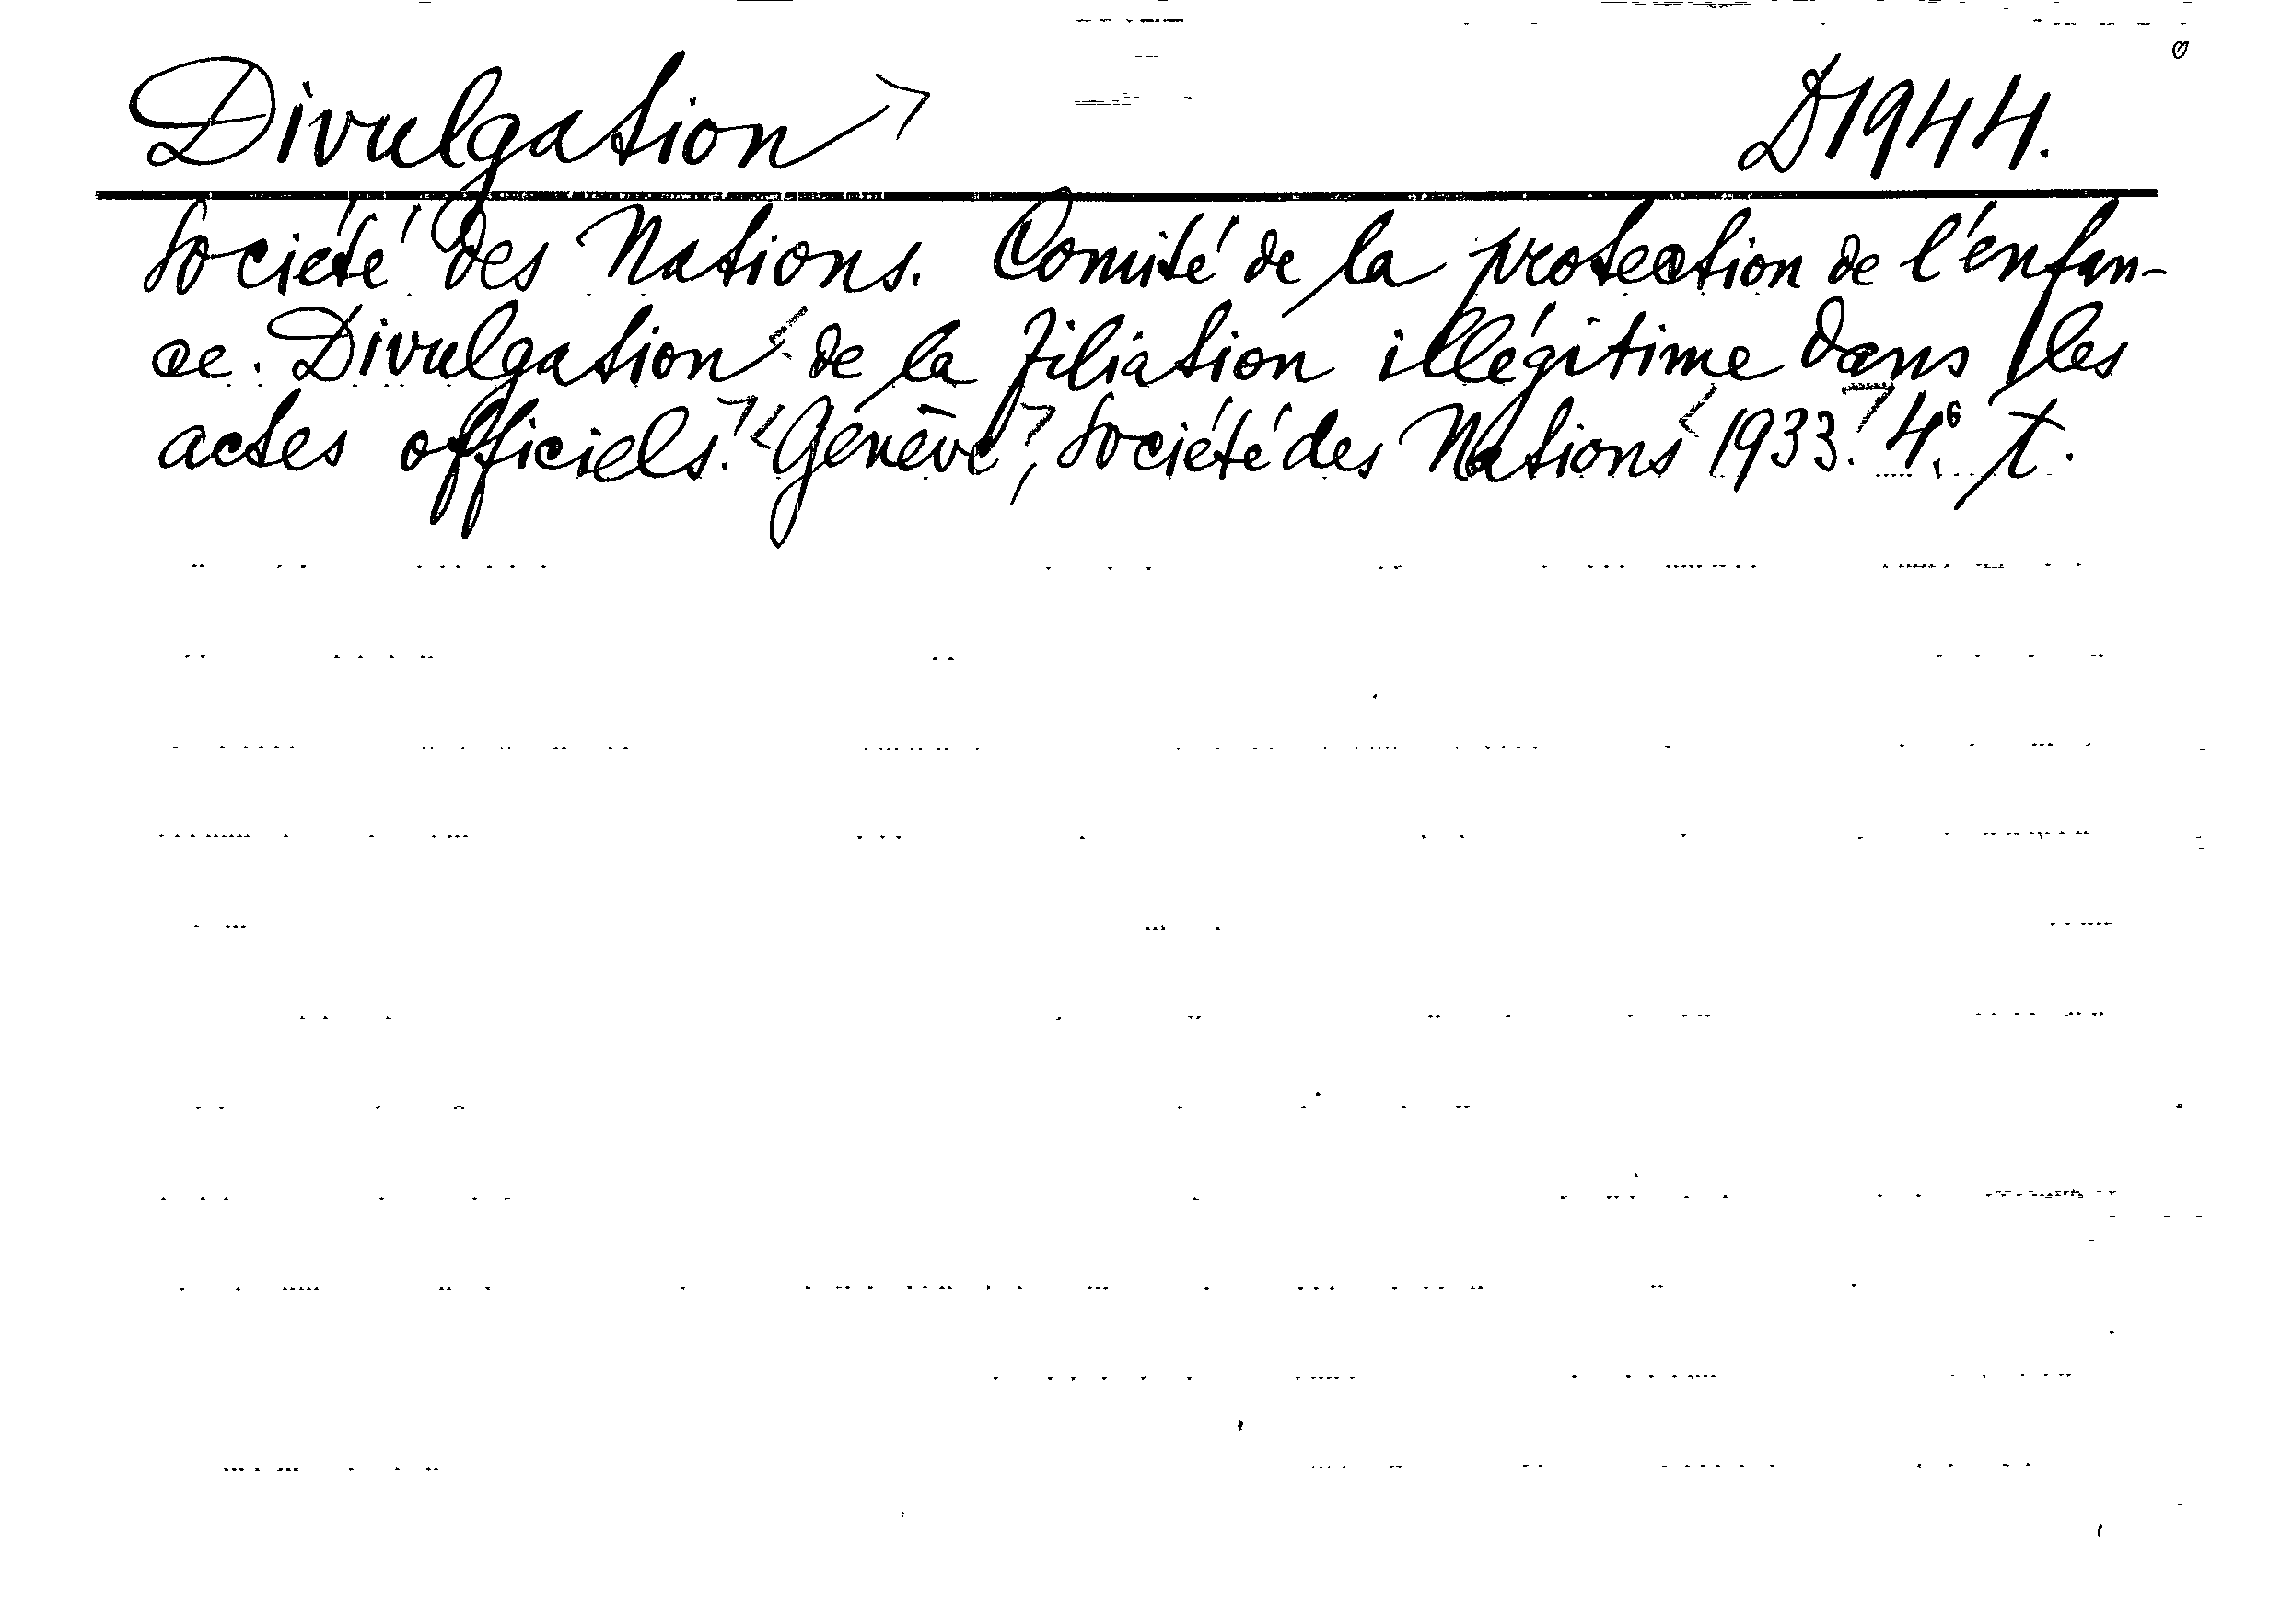 Divulgation D1944.
Société des Nations. Comité de la protection de l'enfan-
ce. Divulgation de la filiation illégitime dans les
actes officiels. Genève, Société des Nations 1933. 4° t.